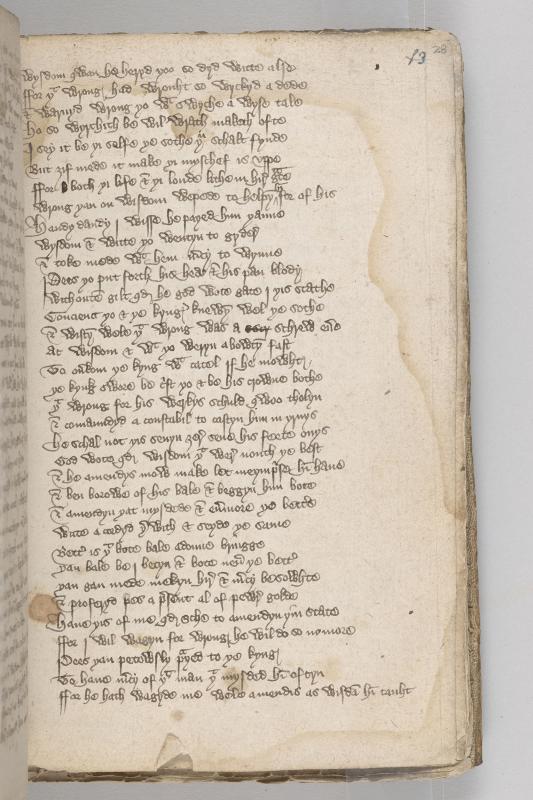 13 28
wysdom qwan he heryd yoo so dyd witte also
ffor yt wrong had wrouht so wyckyd a dede
& warnyd wrong yo wt swyche a wyse tale
ho so wyrchith be wil wrath maketh ofte
I sey it be yi selfe ye sothe yu schalt fynde
But ȝif mede it make yi myschef is vppe
ffor both yi life & yi londe lithe in hir gce
wrong yan on wisdom wepede to helpyn for of his
Handy dandy I wisse he payed hym yanne
wysdom & witte yo wentyn to gyder
& toke mede wt hem mcy to wynne
Pees yo put forth his hed & his pan blody
withoute gilt qd he god wote gate I yis scathe
Conciens yo & ye kyng knewyn wel ye sothe
& wistyn wele yt wrong was a schrewe
at wisdom & wt yo weryn abowtyn fast
To ouercom ye kyng wt catel if he mowhte
ye kyng swore be crst yo & be his crowne bothe
yt wrong for his werkys schuld woo tholyn
& comamdyd a constabil to castyn him in yrnys
he schal not yis seuyn ȝer sene his feete onys
God wote qd wisdom yt wer nouth ye best
& he amendys mow make let meynprse hi haue
& ben borowe of his bale & beggyn him bote
& amendyn yat mysdede & euermore ye bettre
witte acordyd yer with & seyde ye same
Bettr is yt bote bale adoune brynge
yan bale be I betyn & bote neur ye bettr
yan gan mede mekyn hir & mcy besowhte
& proferyd pes a present al of pewr golde
Haue yis of me qd sche to amendyn yin state
ffor I wil wagyn for wrong he wil do so nomore
Pees yan petowsly prayed to ye kyng
To haue mcy of yt man yt mysded hi oftyn
ffor he hath wagyde me wele amendis as wisda hi tauht